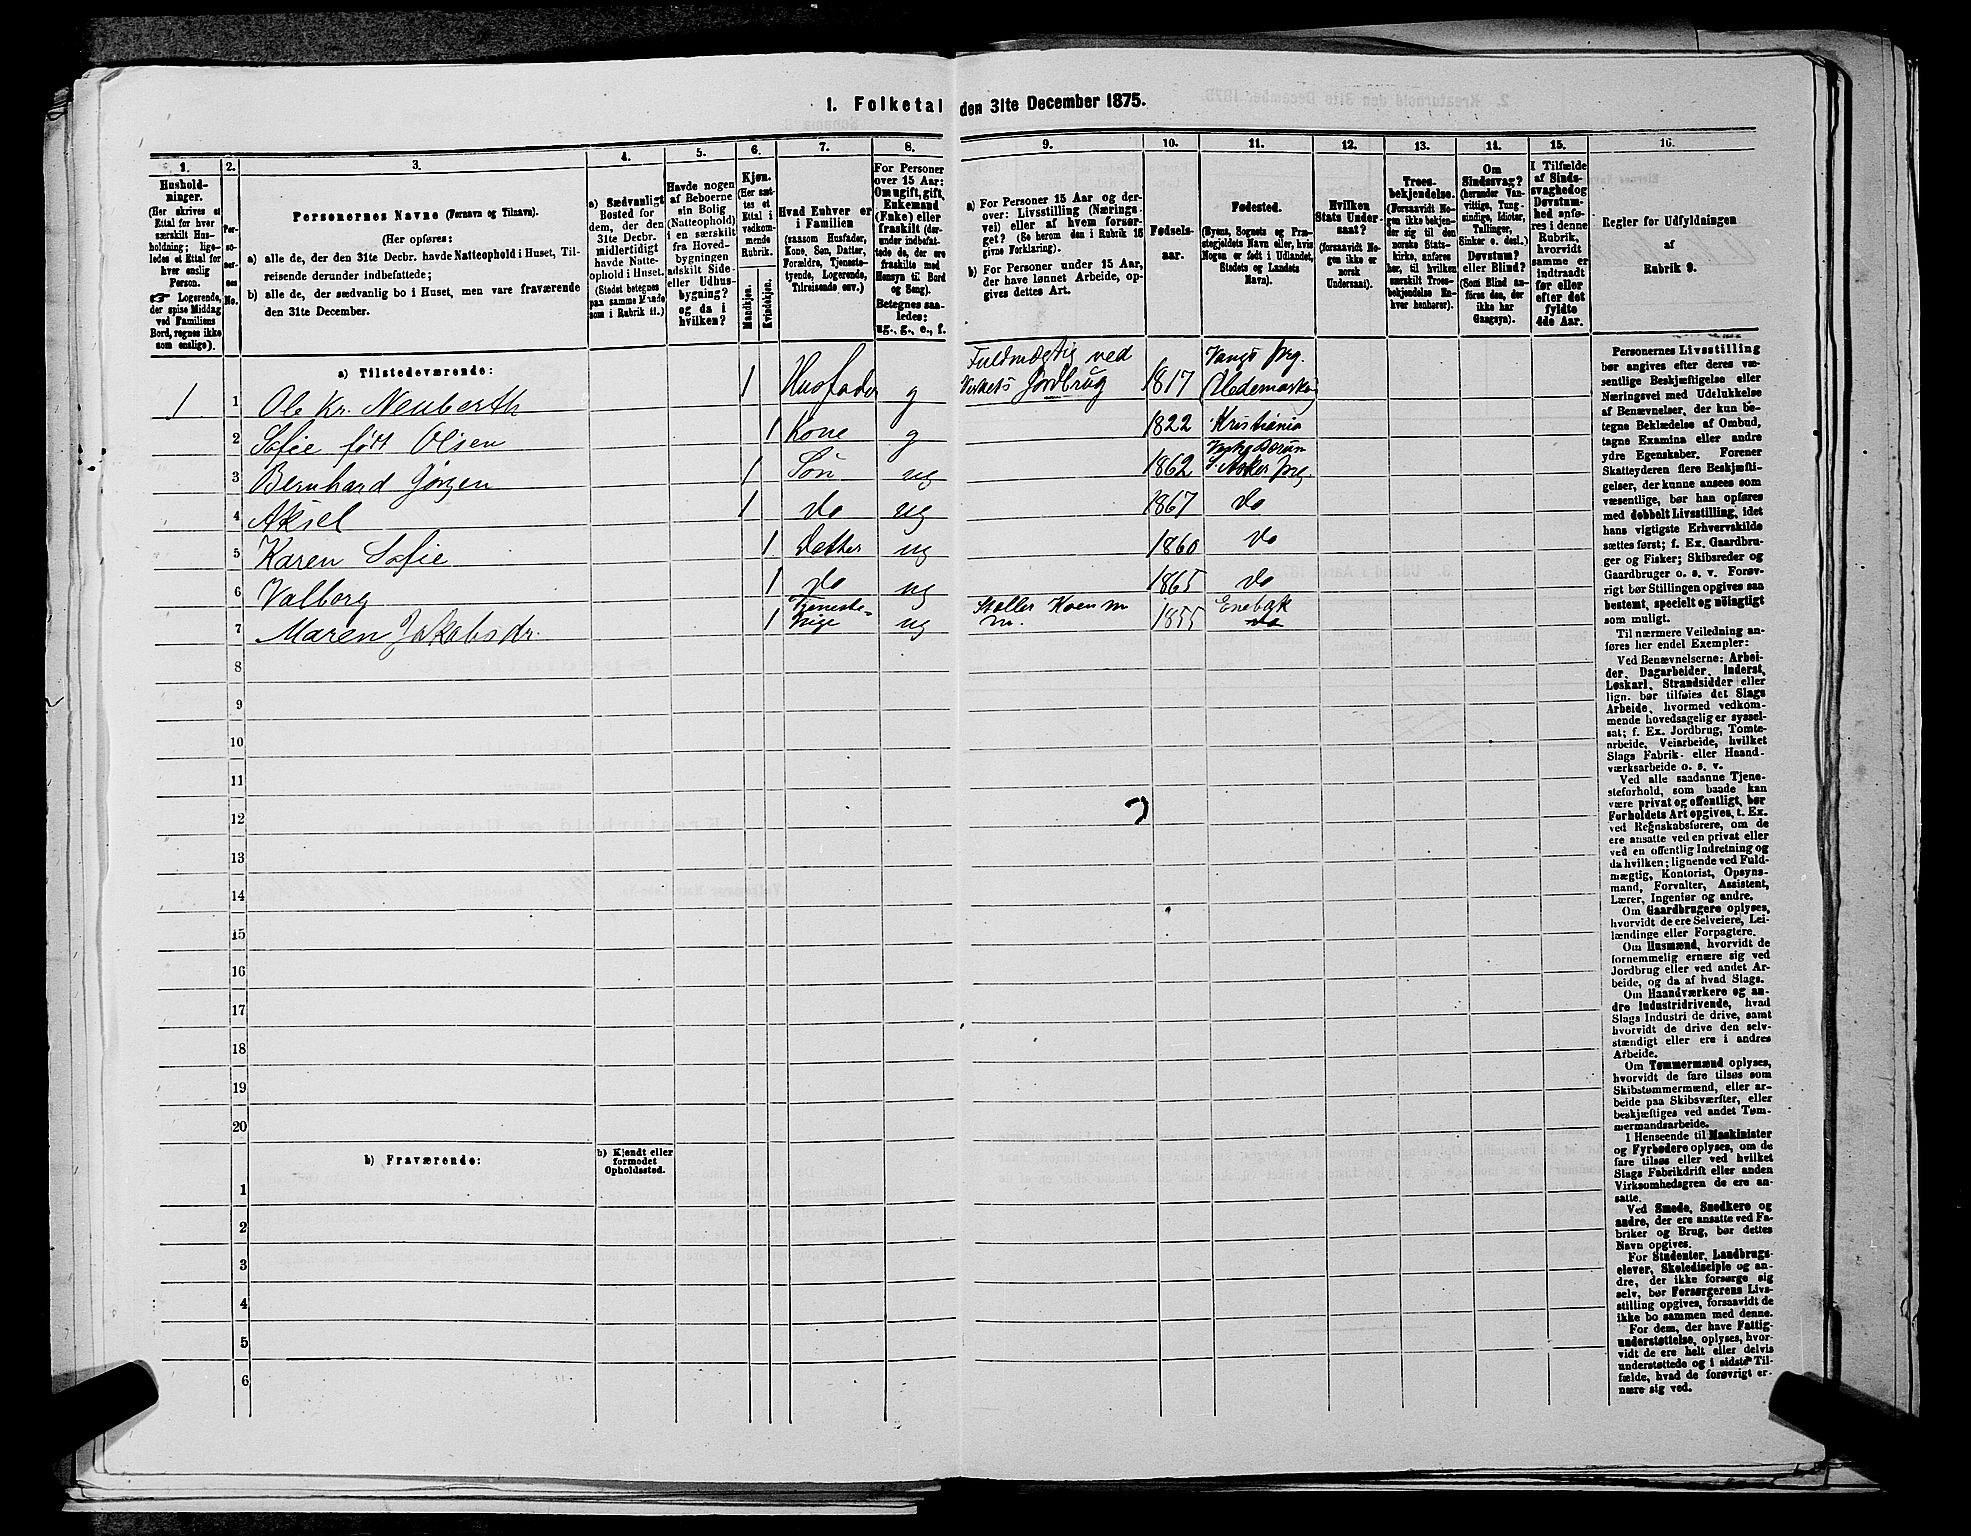 1. Folketal den 31te December 1875.
1.
2.
3.
4.
5.
6.
7.
8.
9.
10.
11.
12.
13.
14.
15.
16.
Hushold-
ninger.
(Her skrives et
Ettal for hver
særskilt Hus-
holdning; lige-
ledes et Ettal for
hver enslig
Person.
☛ Logerende,
der spise Middag
ved Familiens
Bord, regnes ikke
som enslige).
Per-
so-
ner-
nes
No.
Personernes Navne (Fornavn og Tilnavn).
(Her opføres:
a) alle de, der den 31te Decbr. havde Natteophold i Huset, Til-
reisende derunder indbefattede;
b) alle de, der sædvanlig bo i Huset, men vare fraværende
den 31te December.
a) Sædvanligt
Bosted for
dem, der den
31te Decbr.
midlertidigt
havde Natte-
ophold i Huset.
(Stedet betegnes
paa samme Maade
som i Rubrik 11.)
Havde nogen
af Beboerne
sin Bolig
(Natteophold)
i en særskilt
fra Hoved-
bygningen
adskilt Side-
eller Udhus-
bygning?
og da i
hvilken?
Kjøn.
(Her sæt-
tes et
Ettal i
vedkom-
mende
Rubrik.
Mandkjøn.
Kvindekjøn.
Hvad Enhver er
i Familien
(saasom Husfader,
Kone, Søn, Datter,
Forældre, Tjeneste-
tyende, Logerende,
Tilreisende osv.)
For Personer
over 15 Aar:
Om ugift, gift,
Enkemand
(Enke) eller
fraskilt (der-
under indbefat-
tede de, der ere
fraskilte med
Hensyn til Bord
og Seng).
Betegnes saa-
ledes:
ug., g., e., f.
a) For Personer 15 Aar og der-
over: Livsstilling (Nærings-
vei) eller af hvem forsør-
get? (Se herom den i Rubrik 16
givne Forklaring).
b) For Personer under 15 Aar,
der have lønnet Arbeide, op-
gives dettes Art.
Fødsels-
aar.
Fødested.
(Byens, Sognets og Præ-
stegjeldets Navn eller, hvis
Nogen er født i Udlandet,
Stedets og Landets
Navn).
Hvilken
Stats Under-
saat?
(forsaavidt No-
gen ikke er
norsk
Undersaat).
Troes-
bekjendelse.
(Forsaavidt No-
gen ikke bekjen-
der sig til den
norske Stats-
kirke, anføres
her, til hvilken
særskilt Troes-
bekjendelse En-
hver henhører).
Om
Sindssvag?
(herunder Van-
vittige, Tung-
sindige, Idioter,
Sinker o. desl.)
Døvstum?
eller Blind?
(Som Blind an-
føres den, der
ikke har
Gangsyn).
I Tilfælde
af Sinds-
svaghed og
Døvstum-
hed anfø-
res i denne
Rubrik,
hvorvidt
samme er
indtraadt
før eller
efter det
fyldte
4de Aar.
Regler for Udfyldningen
af
Rubrik 9.
a) Tilstedeværende:
1 1 Ole Kr. Neuberth 1 Husfader g Fuldmægtig ved Verkets Jordbrug 1817 Vangs Prg. Hedemarken
2 Sofie født Olsen 1 Kone g 1822 Kristiania
3 Bernhard Jørgen 1 Søn ug 1862 Bærum S. Asker Prg.
4 Aksel 1 do ug 1867 do
5 Karen Sofie 1 Datter ug 1860 do
6 Valborg 1 do ug 1865 do
7 Maren Jakobsdr. 1 Tjeneste-pige ug Steller Køer m. m. 1855 Enebak do
8
9
10
11
12
13
14
15
16
17
18
19
20
b) Fraværende:
b) Kjendt eller
formodet
Opholdssted.
1
2
3
4
5
6
Personernes Livsstilling
bør angives efter deres væ-
sentlige Beskjæftigelse eller
Næringsvei med Udelukkelse
af Benævnelser, der kun be-
tegne Beklædelse af Ombud,
tagne Examina eller andre
ydre Egenskaber. Forener
Skatteyderen flere Beskjæfti-
gelser, der kunne ansees som
væsentlige, bør han opføres
med dobbelt Livsstilling, idet
hans vigtigste Erhvervskilde
sættes først; f. Ex. Gaardbru-
ger og Fisker; Skibsreder og
Gaardbruger o. s. v. Forøv-
rigt bør Stillingen opgives saa
bestemt, specielt og nøiagtigt
som muligt.
Til nærmere Veiledning an-
føres her endel Exempler:
Ved Benævnelserne: Arbei-
der, Dagarbeider, Inderst,
Løskarl, Strandsidder eller
lign. bør tilføies det Slags
Arbeide, hvormed vedkom-
mende hovedsagelig er syssel-
sat; f. Ex. Jordbrug, Tomte-
arbeide, Veiarbeide, hvilket
Slags Fabrik- eller Haand-
værksarbeide o. s. v.
Ved alle saadanne Tjene-
steforhold, som baade kan
være privat og offentligt, bør
Forholdets Art opgives, t. Ex.
ved Regnskabsførere, om de
ere ansatte ved en privat eller
ved en offentlig Indretning og
da hvilken; lignende ved Fuld-
mægtig, Kontorist, Opsyns-
mand, Forvalter, Assistent,
Lærer, Ingeniør og andre.
Om Gaardbrugere oplyses,
hvorvidt de ere Selveiere, Lei-
lændinge eller Forpagtere.
Om Husmænd, hvorvidt de
fornemmelig ernære sig ved
Jordbrug eller ved andet Ar-
beide, og da af hvad Slags.
Om Haandværkere og an-
dre Industridrivende, hvad
Slags Industri de drive, samt
hvorvidt de drive den selv-
stændigt eller ere i andres
Arbeide.
Om Tømmermænd oplyses,
hvorvidt de fare tilsøs som
Skibstømmermænd, eller ar-
beide paa Skibsværfter, eller
beskjæftiges ved andet Tøm-
mermandsarbeide.
I Henseende til Maskinister
og Fyrbødere oplyses, om de
fare tilsøs eller ved hvilket
Slags Fabrikdrift eller anden
Virksomhedsgren de ere an-
satte.
Ved Smede, Snedkere og
andre, der ere ansatte ved Fa-
briker og Brug, bør dettes
Navn opgives.
For Studenter, Landbrugs-
elever, Skoledisciple og an-
dre, der ikke forsørge sig
selv, bør Forsørgerens Livs-
stilling opgives, forsaavidt de
ikke bo sammen med denne.
For dem, der have Fattig-
understøttelse, oplyses, hvor-
vidt de ere helt eller delvis
understøttede og i sidste Til-
fælde, hvad de forøvrigt er-
nære sig ved.